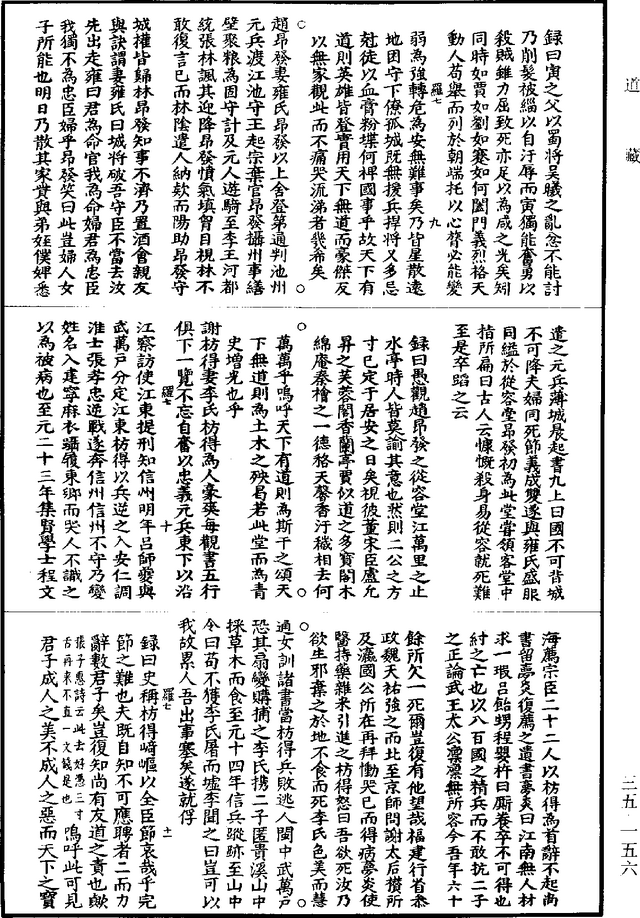 道藏
錄曰寅之父以蜀將吳曦之亂忿不能討
乃削髮被緇以自汙辱而寅獨能奮勇以
殺賊雖力屈致死亦足以為咸之光矣矧
同時如賈如劉如蹇如何闔門義烈格天
動人苟舉而列於朝端托以心膂必能變
羅七
九
弱為強轉危為安無難事矣乃皆星散遠
地困守下僚孤城既無援兵捍將又多忌
尅徒以血膏粉堞何裨國事乎故天下有
道則英雄皆登實用天下無道而豪傑反
以無家觀此而不痛哭流涕者幾希矣
趙昂發妻雍氏昂發以上舍登第通判池州
元兵渡江池守王起宗棄官昂發攝州事繕
壁聚粮為固守計及元人遊騎至李王河都
統張林諷其迎降昂發憤氣填膺目視林不
敢復言已而林陰遣人納款而陽助昂發守
城權皆歸林昂發知事不濟乃置酒會親友
與訣謂妻雍氏曰城將破吾守臣不當去汝
先出走雍曰君為命官我為命婦君為忠臣
我獨不為忠臣婦乎昂發笑曰此豈婦人女
子所能也明日乃散其家貲與弟姪僕婢悉
遣之元兵薄城晨起書几上曰國不可背城
不可降夫婦同死節義成雙遂與雍氏盛服
同縊於從容堂昂發初為此堂嘗領客堂中
指所扁曰古人云慷慨殺身易從容就死難
至是卒蹈之云
錄曰愚觀趙昂發之從容堂江萬里之止
水亭時人皆莫諭其意也然則二公之方
寸已定于居安之日矣視彼董宋臣盧允
昇之芙蓉閣香蘭亭賈似道之多寶閣木
綿庵秦檜之一德格天閣馨香汙穢相去何
萬萬乎嗚呼天下有道則為斯干之頌天
下無道則為土木之殃曷若此堂而為青
史增光也乎
謝枋得妻李氏枋得為人豪爽每觀書五行
俱下一覽不忘自奮以忠義元兵東下以沿
羅七
十
江察訪使江東提刑知信州明年呂師夔與
武萬戶分定江東枋得以兵逆之入安仁調
淮士張孝忠逆戰遂奔信州信州不守乃變
姓名入建寧麻衣躡履東鄉而哭人不識之
以為被病也至元二十三年集賢學士程文
海薦宗臣二十二人以枋得為首辭不起尚
書留夢炎復薦之遺書夢炎曰江南無人材
求一瑕呂飴甥程嬰杵臼厮養卒不可得也
紂之亡也以八百國之精兵而不敢抗二子
之正論武王太公凛凛無所容今吾年六十
餘所欠一死爾豈復有他望哉福建行省叅
政魏天祐強之而北至京師問謝太后欑所
及瀛國公所在再拜慟哭已而得病夢炎使
醫持藥雜米引進之枋得怒曰吾欲死汝乃
欲生邪棄之於地不食而死李氏色美而慧
通女訓諸書當枋得兵敗逃入閩中武萬戶
恐其扇變購捕之李氏携二子匿貴溪山中
採草木而食至元十四年信兵蹤跡至山中
令曰苟不獲李氏屠而墟李聞之曰豈可以
我故累人吾出事塞矣遂就俘
羅七
十一
錄曰史稱枋得﨑嶇以全臣節哀哉乎完
節之難也夫既自知不可應聘者二而力
辭數君子矣豈復知尚有友道之責也歟
張子惠詩云此去好憑三寸
舌再來不直一文錢是也嗚呼此可見
君子成人之美不成人之惡而天下之寶
三五—一五六